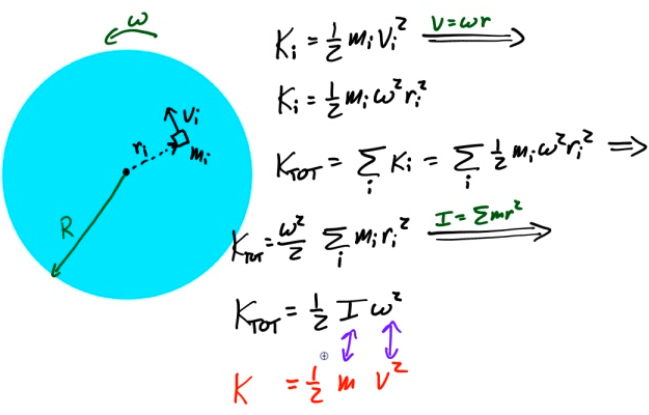 ω
Vᵢ
rᵢ
mᵢ
R
Kᵢ = ½ mᵢ Vᵢ² V=ωr ⟹
Kᵢ = ½ mᵢ ω² rᵢ²
K_TOT = Σᵢ Kᵢ = Σᵢ ½ mᵢ ω² rᵢ² ⟹
K_TOT = ω²/2 Σᵢ mᵢ rᵢ² I = Σmr² ⟹
K_TOT = ½ I ω²
K = ½ m V²